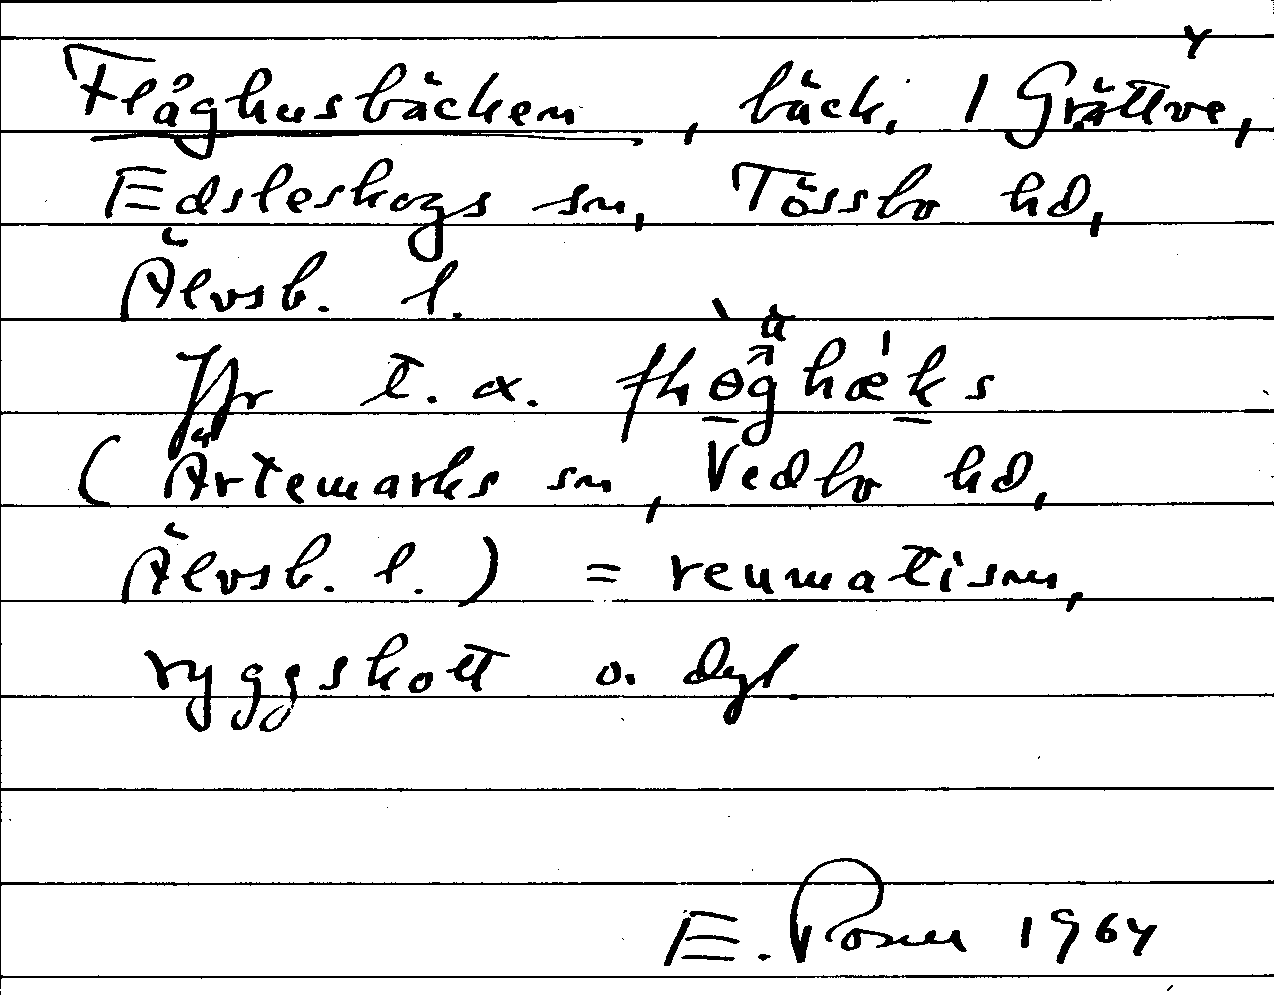 Flåghusbäcken, bäck, 1 Grättve,
Edsleskogs sn, Tössbo hd,
Älvsb. l.
Jfr t. ex.
(Ärtemarks sn, Vedbo hd,
Älvsb. l.) = reumatism,
ryggskott o. dyl.
E. Rosell 1964